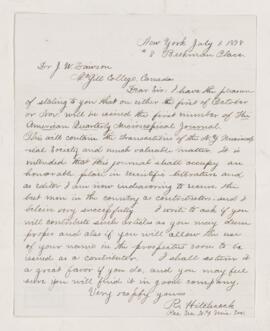 New York July 8 1878
# 8 Beekman Place
Dr J. W. Dawson
McGill College, Canada
Dear Sir. I have the pleasure
of stating to you that on either the first of October
or Nov. will be issued the first number of The
American Quarterly Microscopical Journal.
This will contain the transactions of the N.Y. Microscop-
ical Society and much valuable matter. It is
intended that this journal shall occupy an
honorable place in scientific literature and
as editor I am now endeavoring to secure the
best men in the country as contributors and I
believe very successfully. I write to ask if you
will contribute such articles as you may deem
proper and also if you will allow the use
of your name in the prospectus soon to be
issued as a contributor. I shall esteem it
a great favor if you do, and you may feel
sure you will find it in good company.
Very resp'fy yours
R. Hitchcock
Rec. Sec. N.Y. Mic. Soc.